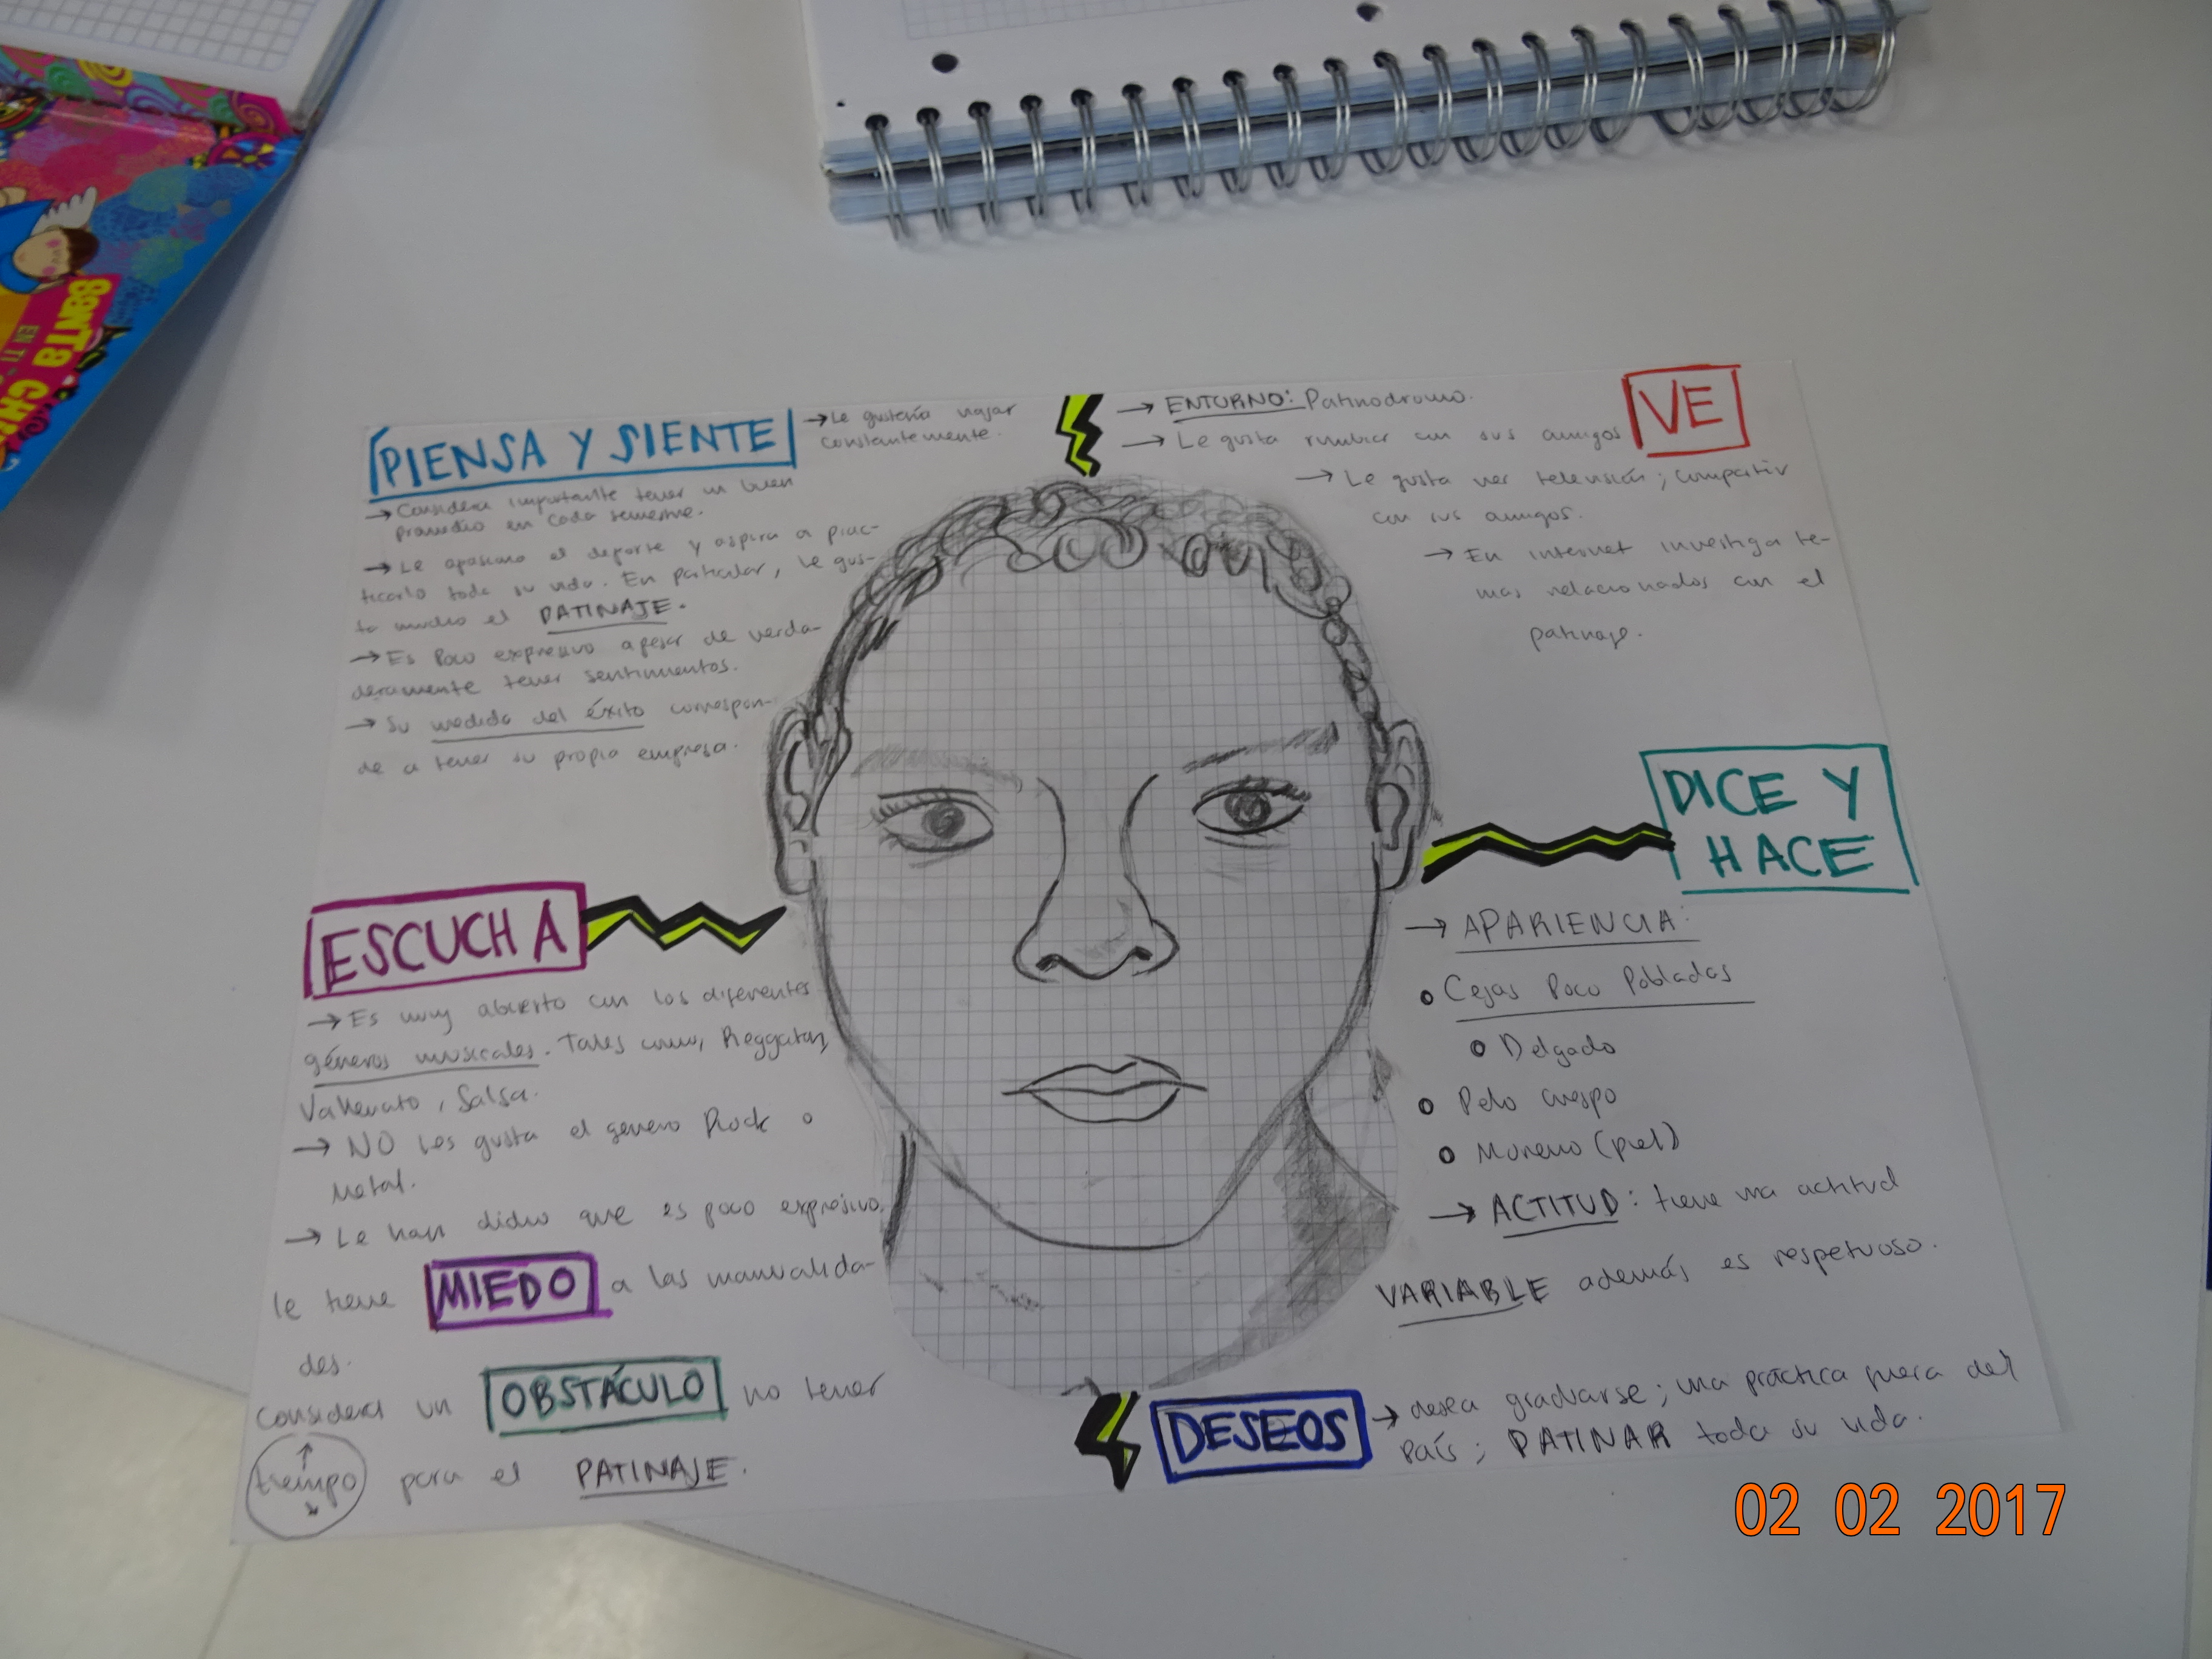 SANTA
EN TI
PIENSA Y SIENTE
→ Le gustaría viajar
constantemente.
→ Considera importante tener un buen
promedio en cada semestre.
→ Le apasiona el deporte y aspira a prac-
ticarlo toda su vida. En particular, le gus-
ta mucho el PATINAJE.
→ Es poco expresivo apesar de verda-
deramente tener sentimientos.
→ Su medida del éxito correspon-
de a tener su propia empresa.
VE
→ ENTORNO: Patinodromo.
→ Le gusta rumbiar con sus amigos
→ Le gusta ver televisión; compartir
con sus amigos.
→ En internet investiga te-
mas relacionados con el
patinaje.
ESCUCHA
→ Es muy abierto con los diferentes
géneros musicales. Tales como, Reggaton,
Vallenato, Salsa.
→ NO les gusta el genero Rock o
Metal.
→ Le han dicho que es poco expresivo,
le tiene MIEDO a las manualida-
des.
Considera un OBSTÁCULO no tener
tiempo para el PATINAJE.
DICE Y
HACE
→ APARIENCIA:
• Cejas Poco Pobladas
• Delgado
• Pelo crespo
• Moreno (piel)
→ ACTITUD: tiene una actitud
VARIABLE además es respetuoso.
DESEOS → desea graduarse; una práctica fuera del
País; PATINAR toda su vida.
02 02 2017